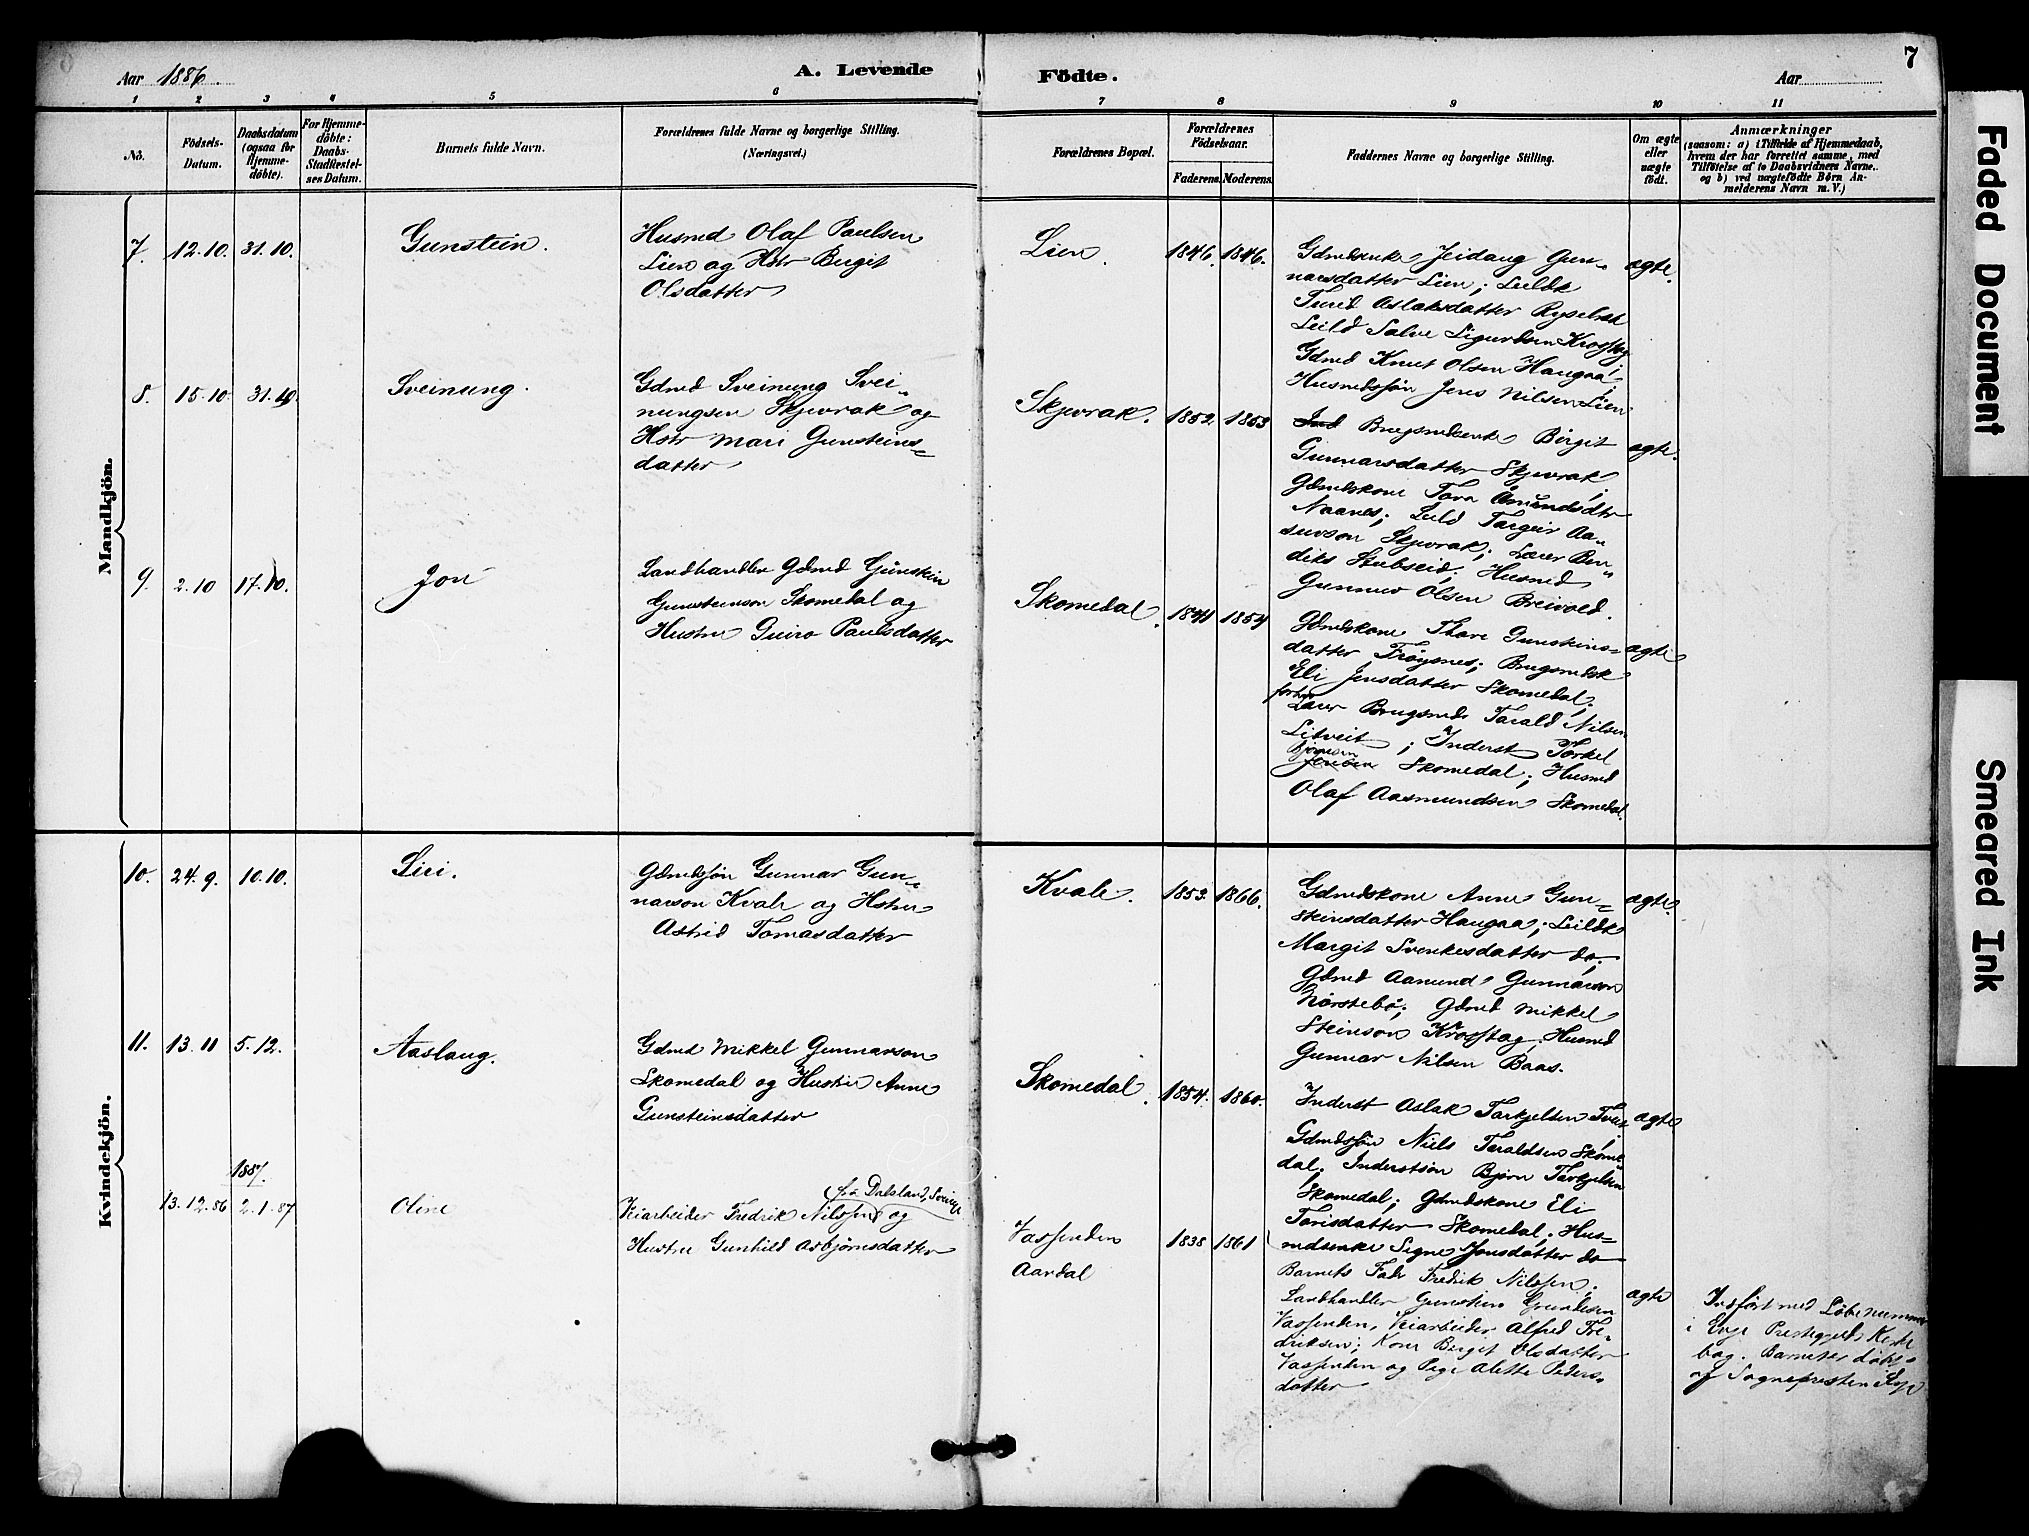 Aar 1886
A. Levende
Födte.
Aar
7
1 2 3 4 5 6 7 8 9 10 11
No.
Födsels-
Datum.
Daabsdatum
(ogsaa for
Hjemme-
döbte).
For Hjemme-
döbte:
Daabs-
Stadfæstel-
ses Datum.
Barnets fulde Navn.
Forældrenes fulde Navne og borgerlige Stilling.
(Næringsvei.)
Forældrenes Bopæl.
Forældrenes
Födselsaar.
Faderens. Moderens.
Faddernes Navne og borgerlige Stilling.
Om ægte
eller
uægte
födt.
Anmærkninger
(saasom: a) i Tilfælde af Hjemmedaab,
hvem der har forrettet samme, med
Tilföielse af to Daabsvidners Navne,
og b) ved uægtefödte Börn An-
melderens Navn m. V.)
Mandkjön.
7. 12.10. 31.10.
Gunstein.
Husmd Olaf Paulsen
Lien og Hstr Birgit
Olsdatter
Lien.
1846. 1846.
Gdmdenke Jeidaug Gun-
narsdatter Lien; Leildk
Turid Aslaksdatter Rysebak
Leild Salve Sigurdsen Krossteg;
Gdmd Knut Olsen Haugaa;
Husmdssön Jens Nilsen Lien
ægte.
8. 15.10. 31.10
Sveinung.
Gdmd Sveinung Svei
nungsen Skjevrak og
Hstr Mari Gunsteins-
datter
Skjevrak.
1852. 1853
Brugsmdenke Birgit
Gunnarsdatter Skjevrak;
Gdmdskone Tora Amundsdtr
Naanes; Leild Targeir Aa-
suvson Skjevrak; Lærer Ben-
diks Stubseid; Husmd
Gunnar Olsen Breivold.
ægte.
9. 2.10 17.10.
Jon
Landhandler Gdmd Gunstein
Gunsteinson Skomedal og
Hustru Guro Paulsdatter
Skomedal.
1841 1854
Gdmdskone Thore Gunsteins-
datter Fröysnes; Brugsmdsk
Eli Jensdatter Skomedal;
forhv
Lærer Brugsmd Tarald Nilsen
Litveit; Inderst Torkel
Björnsen
Jensen Skomedal; Husmd
Olaf Aasmundsen Skomedal.
ægte
Kvindekjön.
10. 24.9. 10.10.
Siri.
Gdmdssön Gunnar Gun-
narson Kvale og Hstru
Astrid Tomasdatter
Kvale.
1853. 1866.
Gdmdskone Anne Gun-
steinsdatter Haugaa; Leildk
Margit Svenkesdatter do.
Gdmd Aamund Gunnarson
Nörstebö; Gdmd Mikkel
Steinson Krossteg. Husmd
Gunnar Nilsen Baas.
ægte.
11. 13.11 5.12.
Aaslaug.
Gdmd Mikkel Gunnarson
Skomedal og Hustru Anne
Gunsteinsdatter
Skomedal.
1854. 1860.
Inderst Aslak Tarkjelsen Tveit
Gdmdssön Niels Taraldsen Skome
dal. Inderstsön Björn Tarkjelsen
Skomedal; Gdmdskone Eli
Torisdatter Skomedal; Hus-
mdsenke Signe Jonsdatter do
ægte
1887.
13.12.86 2.1.87
Oline
(fra Dalsland, Sverige
Veiarbeider Fredrik Nilssen og
Hustru Gunhild Asbjörnsdatter
Vassenden
Aardal
1838. 1861
Barnets Fader Fredrik Nilssen;
Landhandler Gunstein Gundersen
Vassenden, Veiarbeider Alfred Fre-
driksen; Kone Birgit Olsdatter
Vassenden og Pige Alette Peders-
datter
ægte
Indfört med Löbenummer
i Evje Prestegjelds Kirke
bog. Barnet er döbt
af Sognepresten i Evje
Faded Document
Smeared Ink